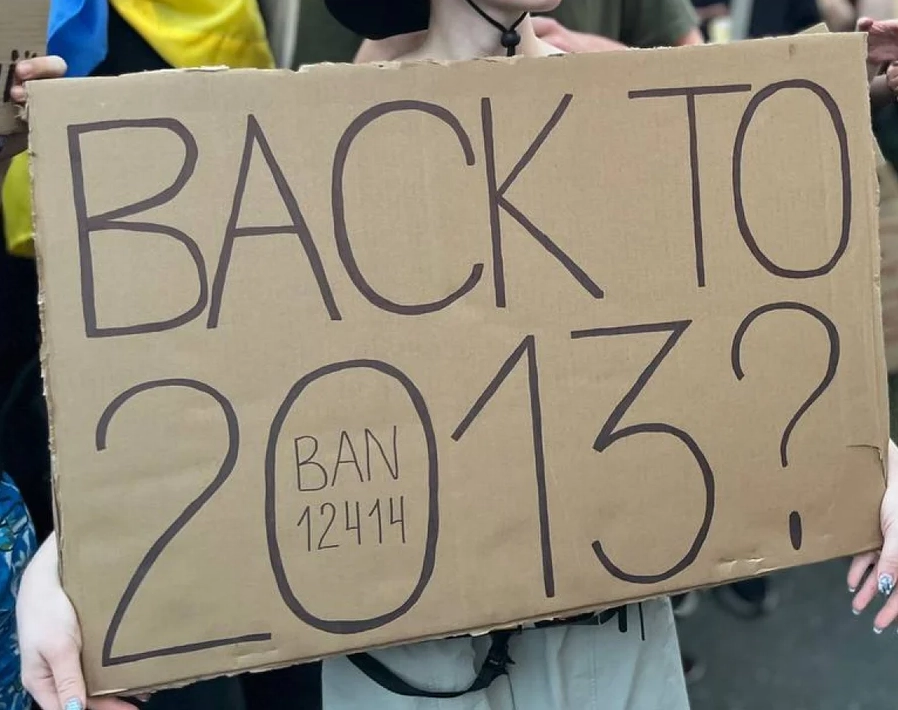 BACK TO
2013?
BAN
12414